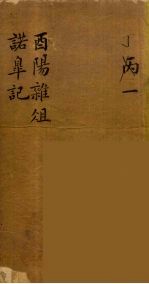 丁丙一
酉陽雜俎
諾臯記